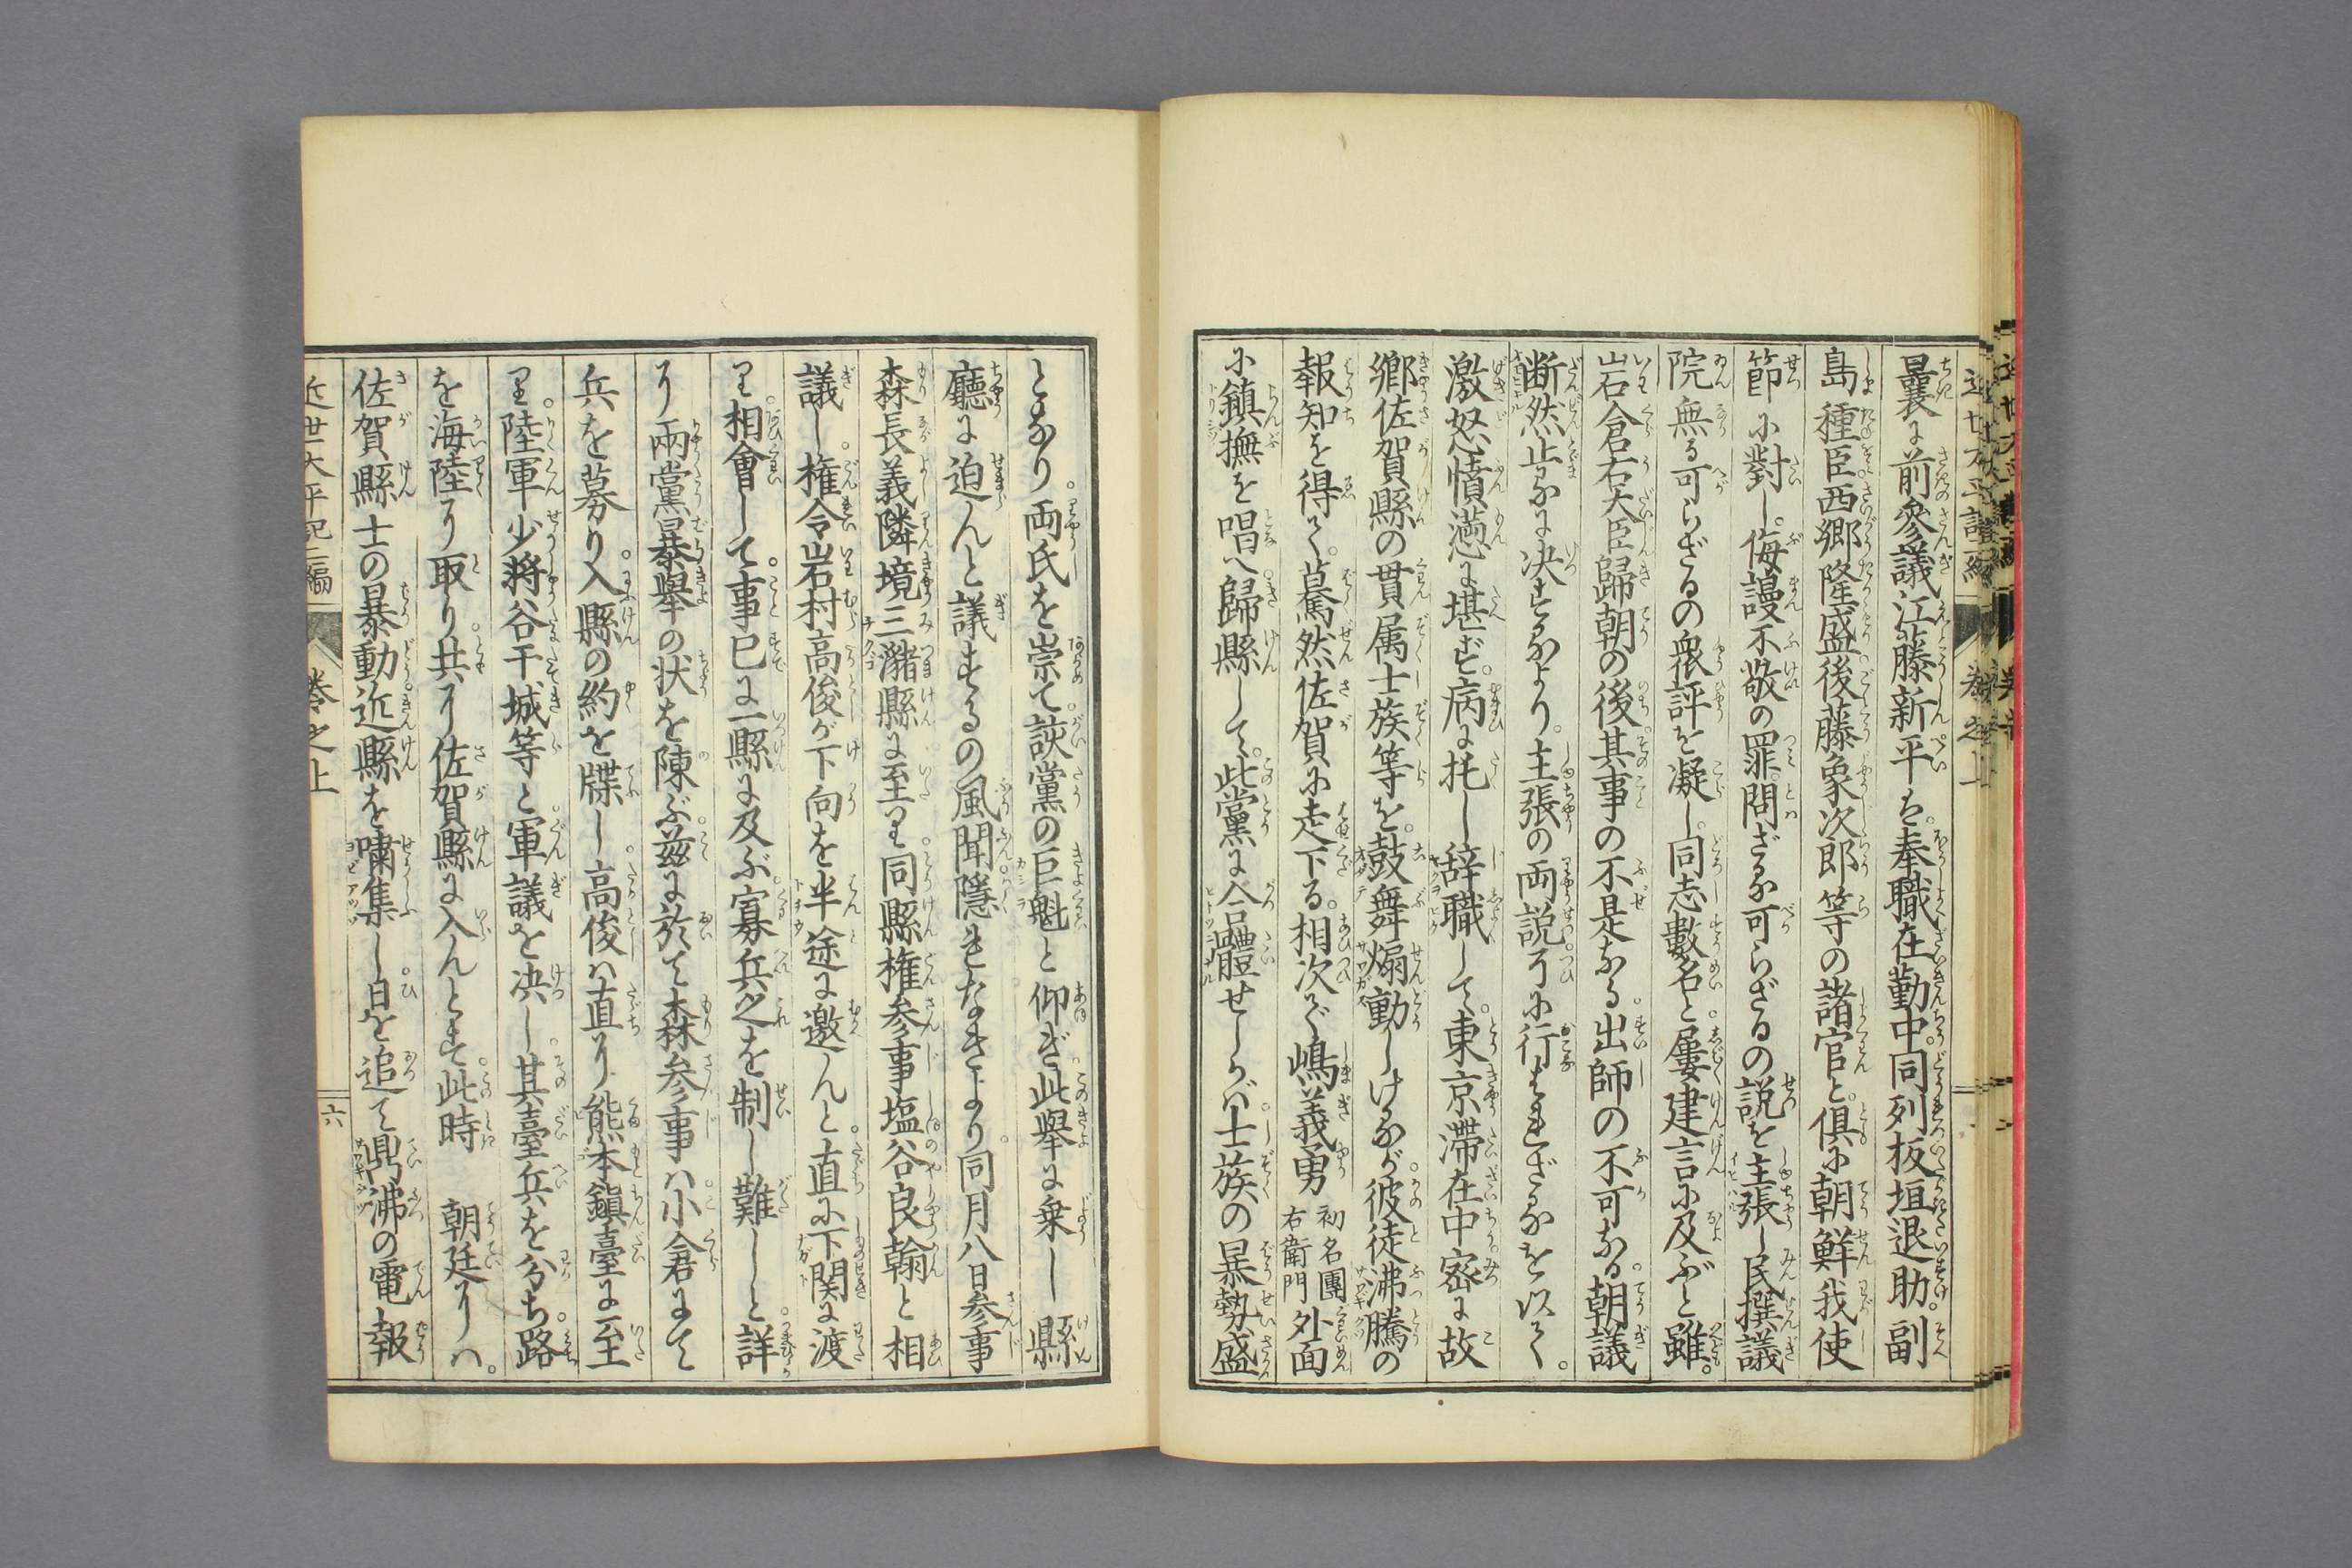 曩に前參議江藤新平ハ。奉職在勤中。同列板垣退助。副
島種臣。西郷隆盛。後藤象次郎等の諸官と。倶に朝鮮我使
節に對し。侮謾不敬の罪。問ざる可らざるの説を主張し民撰議
院無る可らざるの衆評を凝し。同志數名と。屢建言に及ぶと雖。
岩倉右大臣歸朝の後。其事の不是なる。出師の不可なる。朝議
断然止るに决するより。主張の両説つひに行はれざるを以て。
激怒憤懣に堪ず。病に托し辞職して。東京滞在中。密に故
郷佐賀縣の貫属士族等を。鼓舞煽動しけるが。彼徒沸騰の
報知を得て。驀然佐賀に走下る。相次で嶋義勇 初名團右衛門 外面
に鎮撫を唱へ歸縣して。此黨に合體せしかバ。士族の暴勢盛
となり。両氏を崇て。該黨の巨魁と仰ぎ。此舉に乗し縣
廳に迫んと議するの風聞。隠れなきより。同月八日参事
森長義隣境三瀦縣に至り。同縣権参事塩谷良翰と相
議し。権令岩村高俊が下向を半途に邀んと。直に下関に渡
り。相會して。事已に一縣に及ぶ。寡兵之を制し難しと。詳
に兩黨暴舉の状を陳ぶ。茲に於て森参事ハ。小倉にて
兵を募り。入縣の約を牒し。高俊ハ直に熊本鎮臺に至
り。陸軍少将谷干城等と。軍議を决し。其臺兵を分ち。路
を海陸に取り。共に佐賀縣に入んとす。此時 朝廷にハ。
佐賀縣士の暴動。近縣を嘯集し。日を追て鼎沸の電報
近世太平記二編 巻之上 六